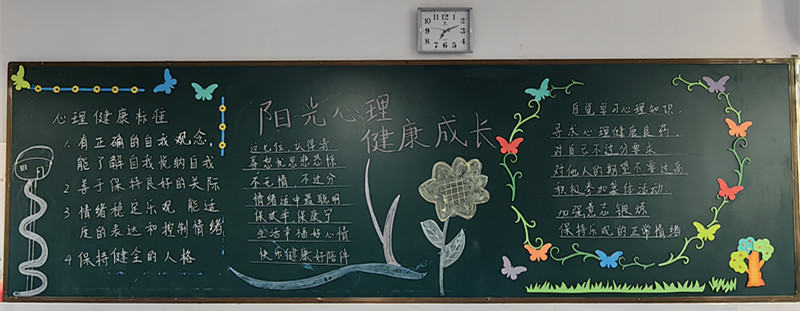 心理健康标准
1. 有正确的自我观念,
能了解自我悦纳自我
2 善于保持良好的关际
3 情绪稳定乐观 能适
度的表达和控制情绪
4 保持健全的人格
阳光心理
健康成长
喜怒忧思悲恐惊
不无情,不过分
情绪适中最聪明
保双手保康宁
生活幸福好心情
快乐健康好陪伴
自觉学习心理知识.
寻求心理健康良药.
对自己不过分要求
对他人的期望不要过高
积极参加集体活动
加强意志锻炼
保持乐观的正常情绪